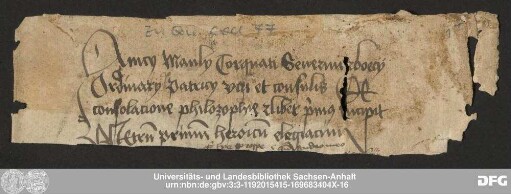 Zu Qu. Cod. 77
Anicy Manly Torquati Severini boecy
Ordinary Patricy viri et consulis de
consolacione philozophie liber primus incipit
Metrum primum heroicum elegiacum
Universitäts- und Landesbibliothek Sachsen-Anhalt
urn:nbn:de:gbv:3:3-1192015415-169683404X-16
DFG